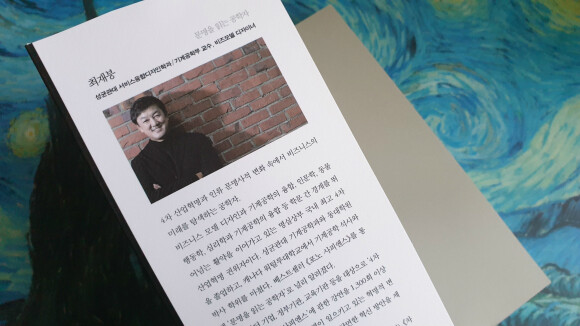 문명을 읽는 공학자
최재붕
성균관대 서비스융합디자인학과/기계공학부 교수, 비즈모델 디자이너
4차 산업혁명과 인류 문명사적 변화 속에서 비즈니스의
미래를 탐색하는 공학자.
비즈니스 모델 디자인과 기계공학의 융합, 인문학, 동물
행동학, 심리학과 기계공학의 융합 등 학문 간 경계를 뛰
어넘는 활약을 이어가고 있는 명실상부 국내 최고 4차
산업혁명 권위자이다. 성균관대 기계공학과와 동대학원
을 졸업하고, 캐나다 워털루대학교에서 기계공학 석사와
박사 학위를 마쳤다. 베스트셀러 《포노 사피엔스》를 통
해 '문명을 읽는 공학자'로 널리 알려졌다.
기업, 정부기관, 교육기관 등을 대상으로 '4차
관한 강연을 1,300회 이상
일으키고 있는 혁명의 변
혁신 방안을 제